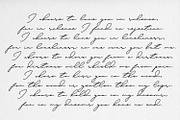 I chose to love you in silence,
for in silence I find no rejection.
I chose to love you in loneliness,
for in loneliness no one owns you but me.
I chose to adore you from a distance
for distance will shield me from pain.
I chose to kiss you in the wind,
for the wind is gentler than my lips.
I chose to hold you in my dreams,
for in my dreams, you have no end.